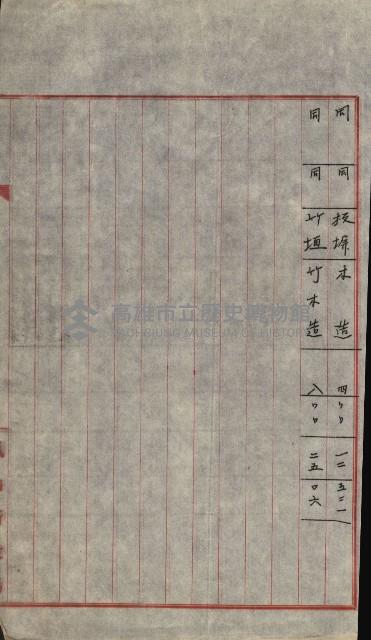 同 同 板塀 木造 四〃〃 一二 五二一
同 同 竹垣 竹木造 入〃〃 二五 〇六
高雄市立歷史博物館
KAOHSIUNG MUSEUM OF HISTORY